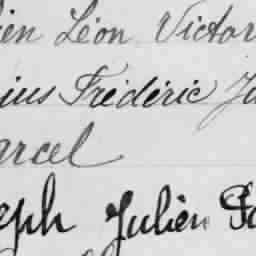 ien Léon Victor
ius Frédéric Ju
arcel
eph Julien Pa